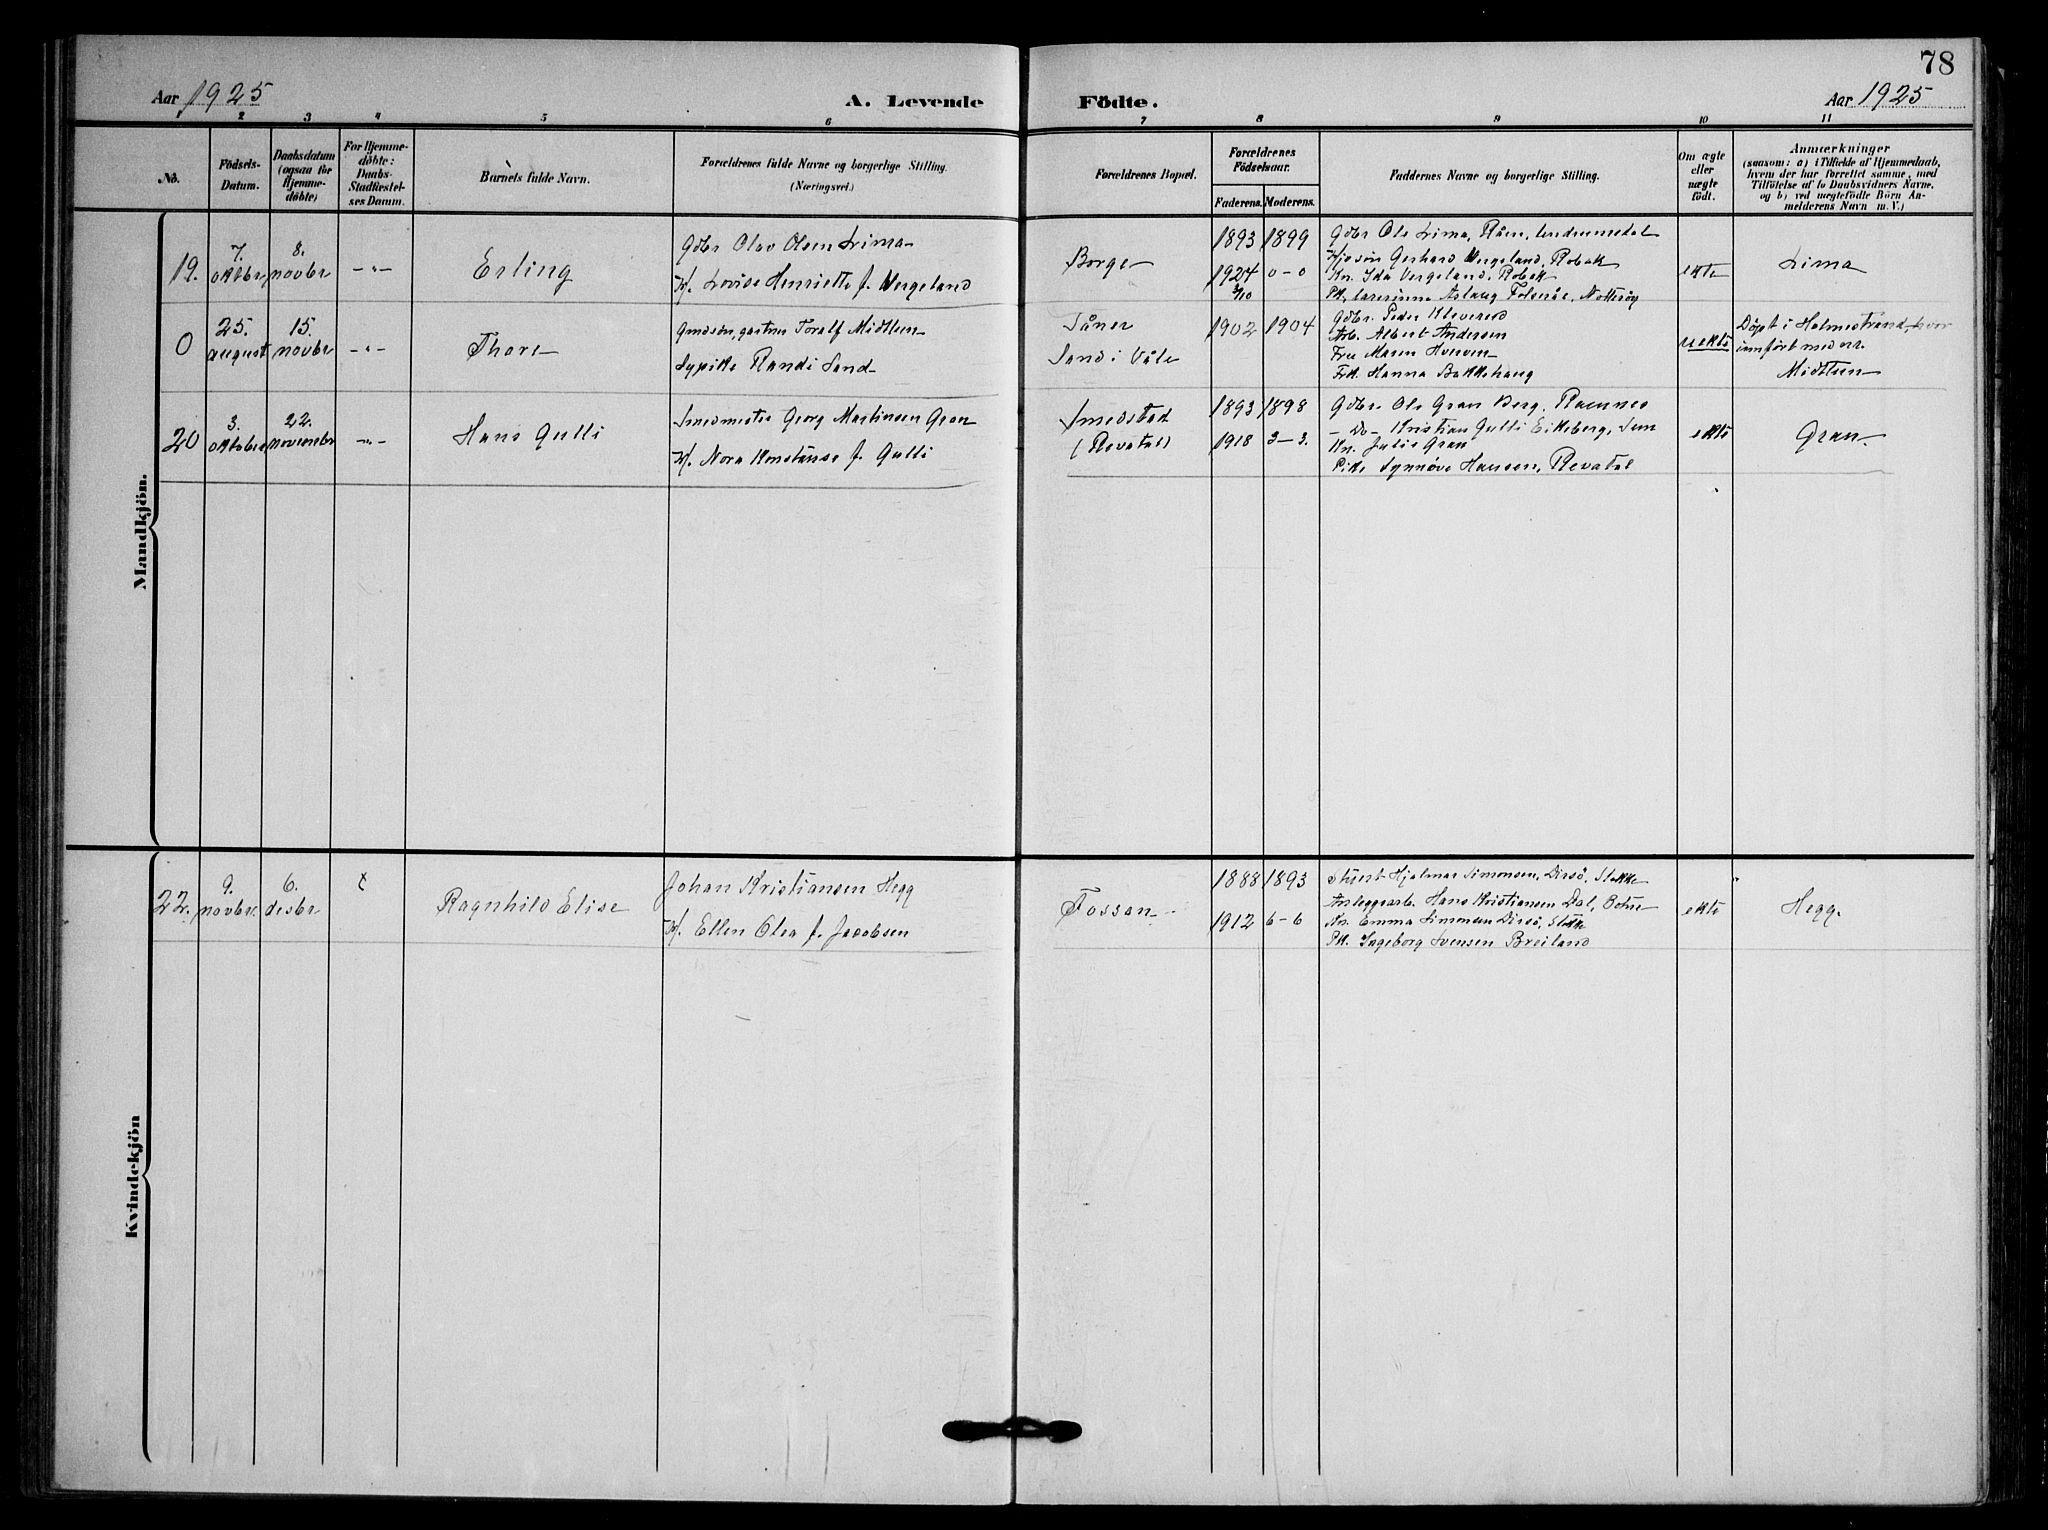 78
Aar 1925
A. Levende
Födte.
Aar 1925
1 2 3 4 5 6 7 8 9 10 11
No.
Födsels-
Datum.
Daabsdatum
(ogsaa for
Hjemme-
döbte)
For Hjemme-
döbte:
Daabs-
Stadfæstel-
ses Datum.
Barnets fulde Navn.
Forældrenes fulde Navne og borgerlige Stilling.
(Næringsvei.)
Forældrenes Bopæl.
Forældrenes
Födselsaar.
Faderens. Moderens.
Faddernes Navne og borgerlige Stilling.
Om ægte
eller
uægte
födt.
Anmærkninger
(saasom: a) i Tilfælde af Hjemmedaab,
hvem der har forrettet samme, med
Tilföielse af to Daabsvidners Navne,
og b) ved uægtefödte Börn An-
melderens Navn m. V.)
Mandkjön.
19.
7.
oktbr
8.
novbr
-"-
Erling
Gdbr Olav Olsen Lima
H. Lovise Henriette f. Vergeland
Borge
1893 1899
1924 0-0
3/10
Gdbr Ole Lima,
Gerhard Vergeland, Robek
Kn. Ida Vergeland, Robek
Aslaug Nøtterøy
ekte
Lima
0
25.
august
15.
novbr
-"-
Thore
gartner Toralf Midtlien
Sypike Randi Sand
Såner
Sand i Våle
1902 1904
Gdbr. Peder Kleverud
Arb. Albert Andersen
Fru Maren
Frk. Hanna Bakkehaug
uekte
Døpt i Holmestrand, hvor
innført med nr.
Midtlien
20
3.
oktober
22.
novembr
-"-
Hans Gulli
Smedmester Georg Martinsen Gran
H. Nora Konstanse f. Gulli
Smedstad
(Revatal)
1893 1898
1918 3-3.
Gdbr. Ole Gran Berg, Ramnes
- Do - Kristian Gulli Eikeberg, Sem
Kn. Julie Gran
Pike Synnøve Hansen, Revatal
ekte
Gran
Kvindekjön
22.
9.
novbr.
6.
desbr
Ragnhild Elise
Johan Kristiansen Hegg
H. Ellen Olea f. Jacobsen
Fossan
1888 1893
1912 6-6
Hjalmar Simonsen, Dirsö, Stokke
Anleggsarb. Hans Kristiansen Dal, Botne
Kn. Emma Simonsen Dirsö, Stokke
Pk. Ingeborg Svensen Breiland
ekte
Hegg.